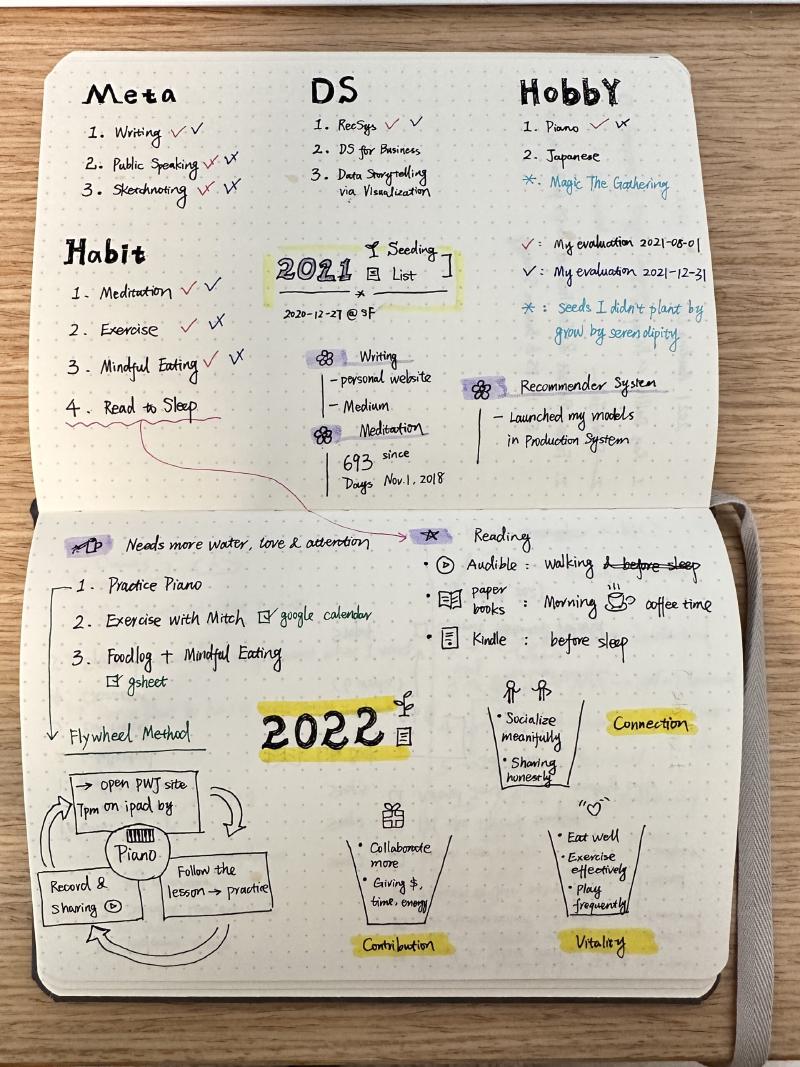 Meta
1. Writing ✓ ✓
2. Public Speaking
3. Sketchnoting
DS
1. RecSys ✓ ✓
2. DS for Business
3. Data Storytelling
via Visualization
HobbY
1. Piano ✓
2. Japanese
*. Magic The Gathering
✓: My evaluation 2021-08-01
✓: My evaluation 2021-12-31
* : seeds I didn't plant by
grow by serendipity
Habit
1. Meditation ✓ ✓
2. Exercise ✓
3. Mindful Eating ✓
4. Read to Sleep
2021 Seeding
List
2020-12-27 @ SF
Writing
- personal website
- Medium
Meditation
693 since
Days Nov.1, 2018
Recommender System
- Launched my models
in Production System
Needs more water, love & attention
1. Practice Piano
2. Exercise with Mitch ☑ google calendar
3. Foodlog + Mindful Eating
☑ gsheet
Flywheel Method
→ open PWJ site
7pm on ipad by
Piano
Follow the
lesson → practice
Record &
sharing
☆ Reading
• Audible : walking & before sleep
• paper
books : Morning coffee time
• Kindle : before sleep
2022
• Socialize
meanifully
• Sharing
honestly
Connection
• Collaborate
more
• Giving $,
time, energy
Contribution
• Eat well
• Exercise
effectively
• Play
frequently
Vitality